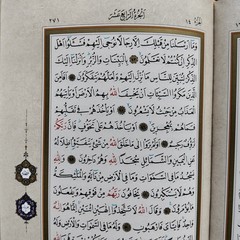 الجزء ١٤ الجزء الرابع عشر ٢٧١
وَمَا أَرْسَلْنَا مِنْ قَبْلِكَ إِلَّا رِجَالًا نُوحِي إِلَيْهِمْ فَسْئَلُوا أَهْلَ
الذِّكْرِ إِنْ كُنْتُمْ لَا تَعْلَمُونَ بِالْبَيِّنَاتِ وَالزُّبُرِ وَأَنْزَلْنَا إِلَيْكَ
الذِّكْرَ لِتُبَيِّنَ لِلنَّاسِ مَا نُزِّلَ إِلَيْهِمْ وَلَعَلَّهُمْ يَتَفَكَّرُونَ
أَفَأَمِنَ الَّذِينَ مَكَرُوا السَّيِّئَاتِ أَنْ يَخْسِفَ اللهُ بِهِمُ الْأَرْضَ أَوْ يَأْتِيَهُمُ
الْعَذَابُ مِنْ حَيْثُ لَا يَشْعُرُونَ أَوْ يَأْخُذَهُمْ فِي تَقَلُّبِهِمْ
فَمَا هُمْ بِمُعْجِزِينَ أَوْ يَأْخُذَهُمْ عَلَى تَخَوُّفٍ فَإِنَّ رَبَّكُمْ
لَرَؤُفٌ رَحِيمٌ أَوَلَمْ يَرَوْا إِلَى مَا خَلَقَ اللهُ مِنْ شَيْءٍ يَتَفَيَّؤُا
ظِلَالُهُ عَنِ الْيَمِينِ وَالشَّمَائِلِ سُجَّدًا لِلهِ وَهُمْ دَاخِرُونَ
وَلِلهِ يَسْجُدُ مَا فِي السَّمٰوَاتِ وَمَا فِي الْأَرْضِ مِنْ دَابَّةٍ وَالْمَلٰئِكَةُ
وَهُمْ لَا يَسْتَكْبِرُونَ يَخَافُونَ رَبَّهُمْ مِنْ فَوْقِهِمْ وَيَفْعَلُونَ
مَا يُؤْمَرُونَ وَقَالَ اللهُ لَا تَتَّخِذُوا إِلٰهَيْنِ اثْنَيْنِ إِنَّمَا هُوَ إِلٰهٌ